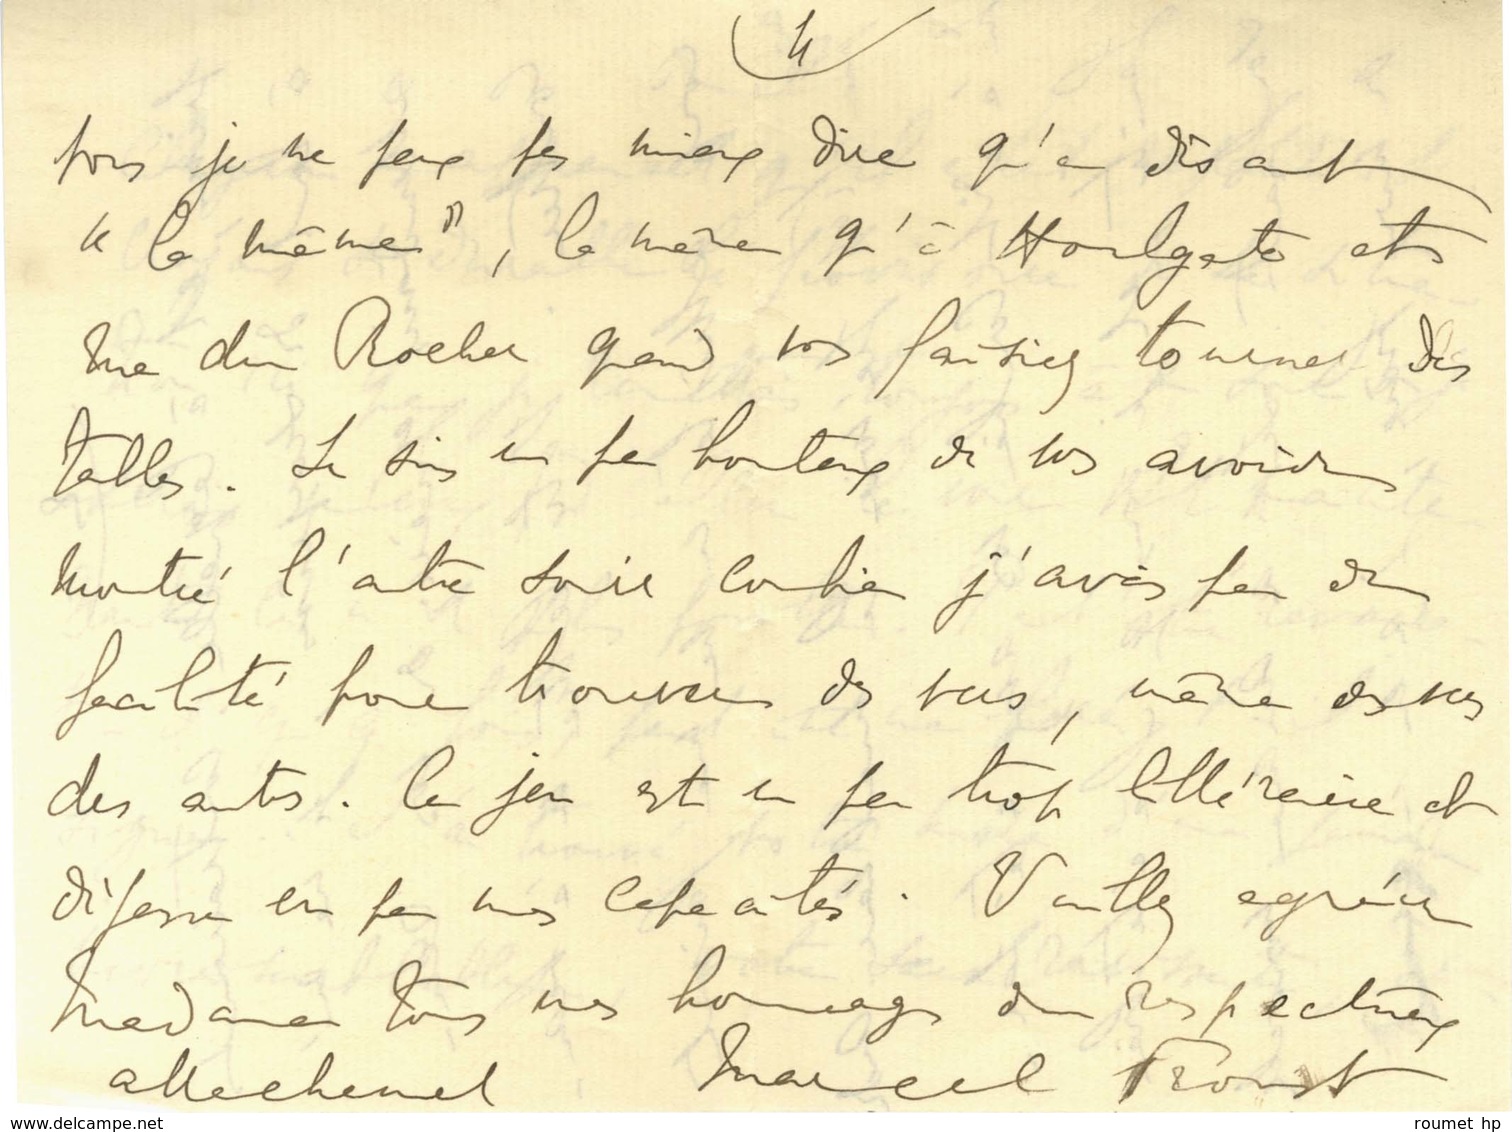 4
pas je ne peux pas mieux dire qu'en disant
"la même", la même qu'à Houlgate et
rue du Rocher quand vous faisiez tourner des
tables. Je suis un peu honteux de vous avoir
montré l'autre soir combien j'avais peu de
facilité pour trouver des vers, même des vers
des autres. Ce jeu est un peu trop littéraire et
dépasse un peu mes capacités. Veuillez agréer
Madame tous mes hommages de respectueux
attachement Marcel Proust
www.delcampe.net
roumet hp